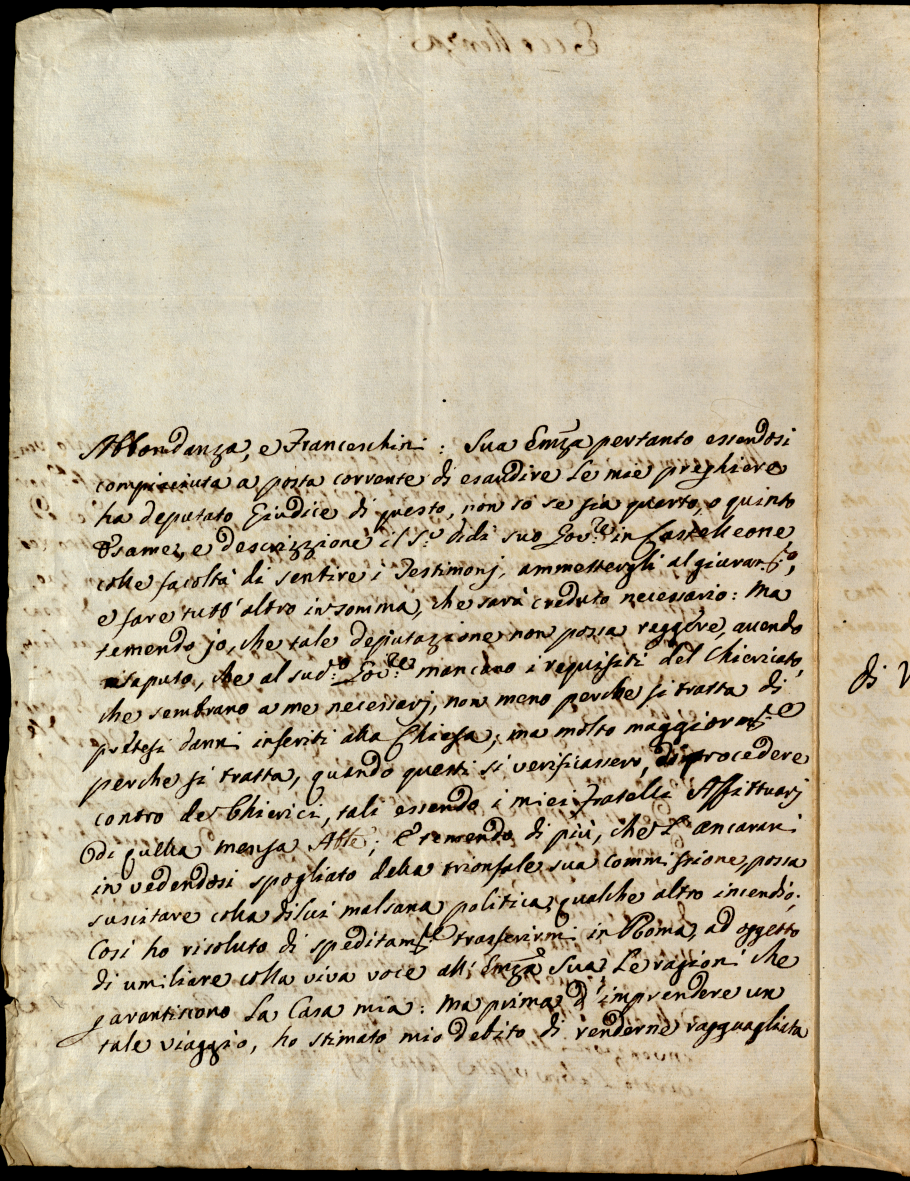 Abbondanza, e Franceschini: Sua Emza pertanto essendosi
compiaciuta a posta corrente di esaudire Le mie preghiere
ha deputato Giudice di questo, non so se sia quarto, o quinto
Esame, e descrizzione il Sr. di suo Govre. in Castelleone,
colle facoltà di sentire i Testimonj, ammettergli al giuramto,
e fare tutt' altro insomma, che sarà creduto necessario: Ma
temendo jo, che tale deputazione non possa reggere, avendo
saputo, che al sudo. Govre. mancano i requisiti del Chiericato,
che sembrano a me necessarj, non meno perche si tratta di
pretesi danni inferiti alla Chiesa; ma molto maggiormte
perche si tratta, quando questi si verificassero, di procedere
contro de Chierici, tali essendo i miei fratelli Affittuarj
di quella mensa Abbe; E temendo di più, che L' Ancarani
in vedendosi spogliato della trionfale sua Commissione, possa
suscitare colla dilui malsana politica qualche altro incendio;
Così ho risoluto di speditamte trasferirmi in Roma, ad oggetto
di umiliare colla viva voce all' Emza Sua Le ragioni che
garantiscono La Casa mia: Ma prima d' imprendere un
tale viaggio, ho stimato mio debito di renderne ragguagliata
di